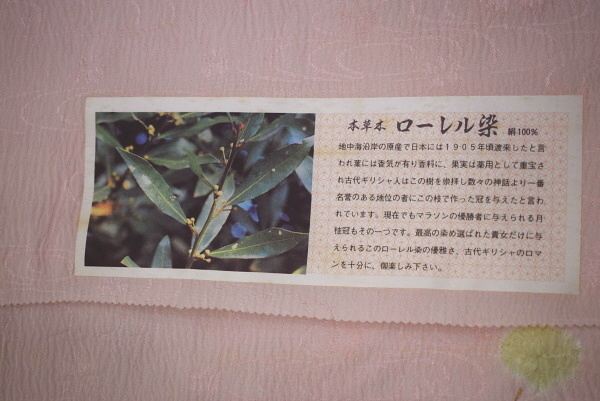 本草木 ローレル染 絹100%
地中海沿岸の原産で日本には1905年頃渡来したと言
われ葉には香気が有り香料に、果実は薬用として重宝さ
れ古代ギリシャ人はこの樹を崇拝し数々の神話より一番
名誉のある地位の者にこの枝で作った冠を与えたと言わ
れています。現在でもマラソンの優勝者に与えられる月
桂冠もその一つです。最高の染め選ばれた貴女だけに与
えられるこのローレル染の優雅さ、古代ギリシャのロマ
ンを十分に、御楽しみ下さい。